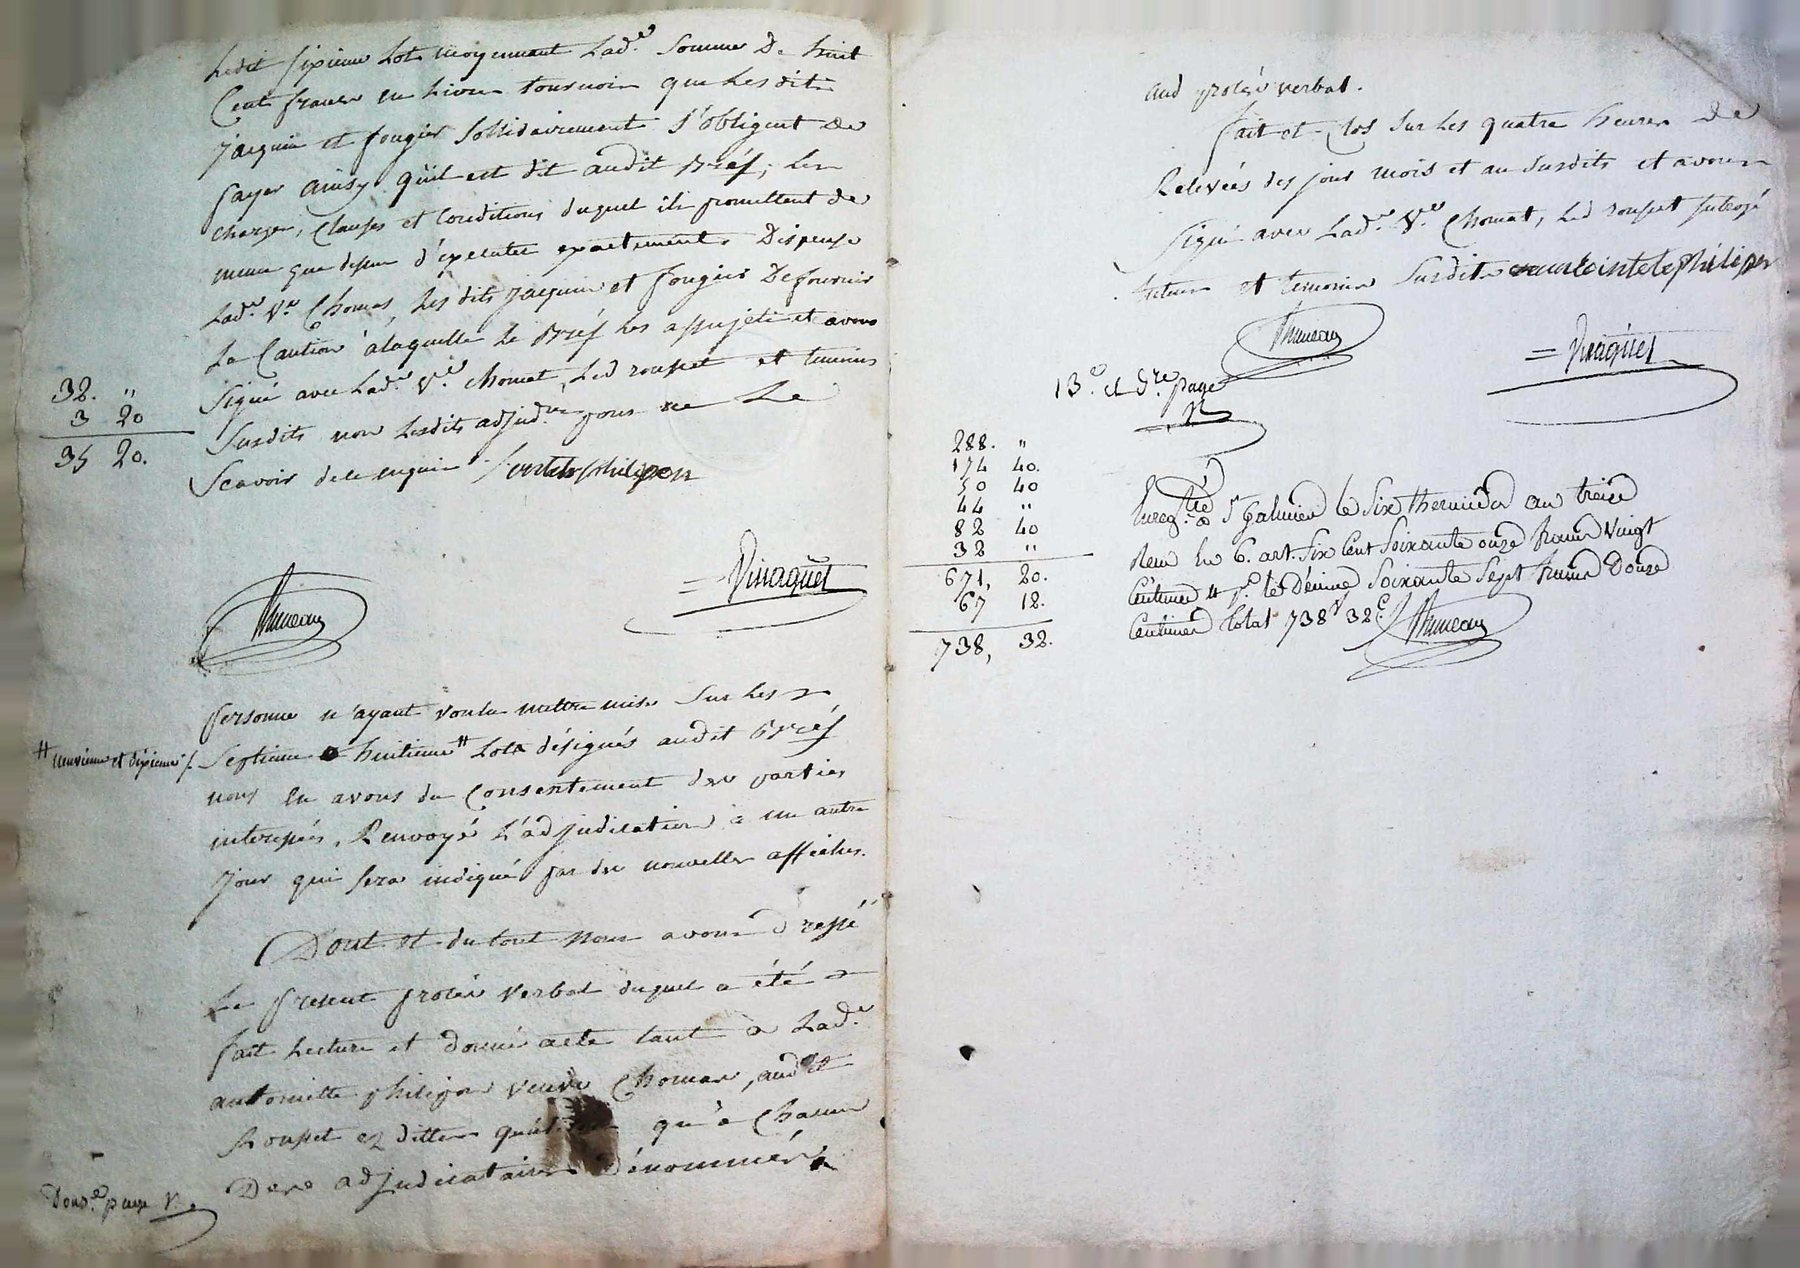 Ledit sixieme Lot moyennant Lad.e somme De huit
Cent francs ou Livres tournois que Lesdits
jacquin et fougier sollidairement s'obligent De
payer ainsy qu'il est dit audit Bref, Les
charges, Clauses et Conditions duquel ils promettent de
meme que dessus d'éxecuter exactement. Dispense
Lad.e V.e Chomat, les dits jacquin et fougier De fournir
La Caution a laquelle le Bref les assujetit et avons
32. "
3 20
35 20.
Signé avec Lad.e V.e chomat, Led rousset et temoins
Susdits non Lesdits adjud.res pour ne Le
Scavoir de ce enquis
Bruneau
= Viraguet
personne n'ayant voulu mettre mise Sur Les
# neuvieme et dixieme /.
Septieme huitieme # Lots désignés audit Bref
nous en avons du Consentement des parties
interessées, Renvoyé L'adjudication à un autre
jour qui sera indiqué par de nouvelles affiches.
Dont et du tout Nous avons dressé
Le present procès verbal duquel a été
fait Lecture et donné acte tant a Lad.e
antoinette philipon veuve Chomat, audit
Rousset ez dittes qualités qu'à Chacun
Des adjudicataires Dénommés
Douz.e page V.
aud procès verbal.
fait et Clos sur Les quatre heures De
Relevées des jour mois et an susdits et avons
signé avec Lad.e V.e Chomat, Led rousset subrogé
tuteur et temoins Susdits antointete philipon
Bruneau
= Viraguet
13.e et d.re page
V
288. "
174 40.
50 40
44 "
82 40
32 "
671, 20.
67 12.
738, 32.
Enreg.tré a St galmier le Six thermidor an treize
Recu en 6. art. Six Cent Soixante onze francs Vingt
Centimes & p.r le Décime Soixante Sept francs Douze
Centimes total 738f 32c. / Bruneau